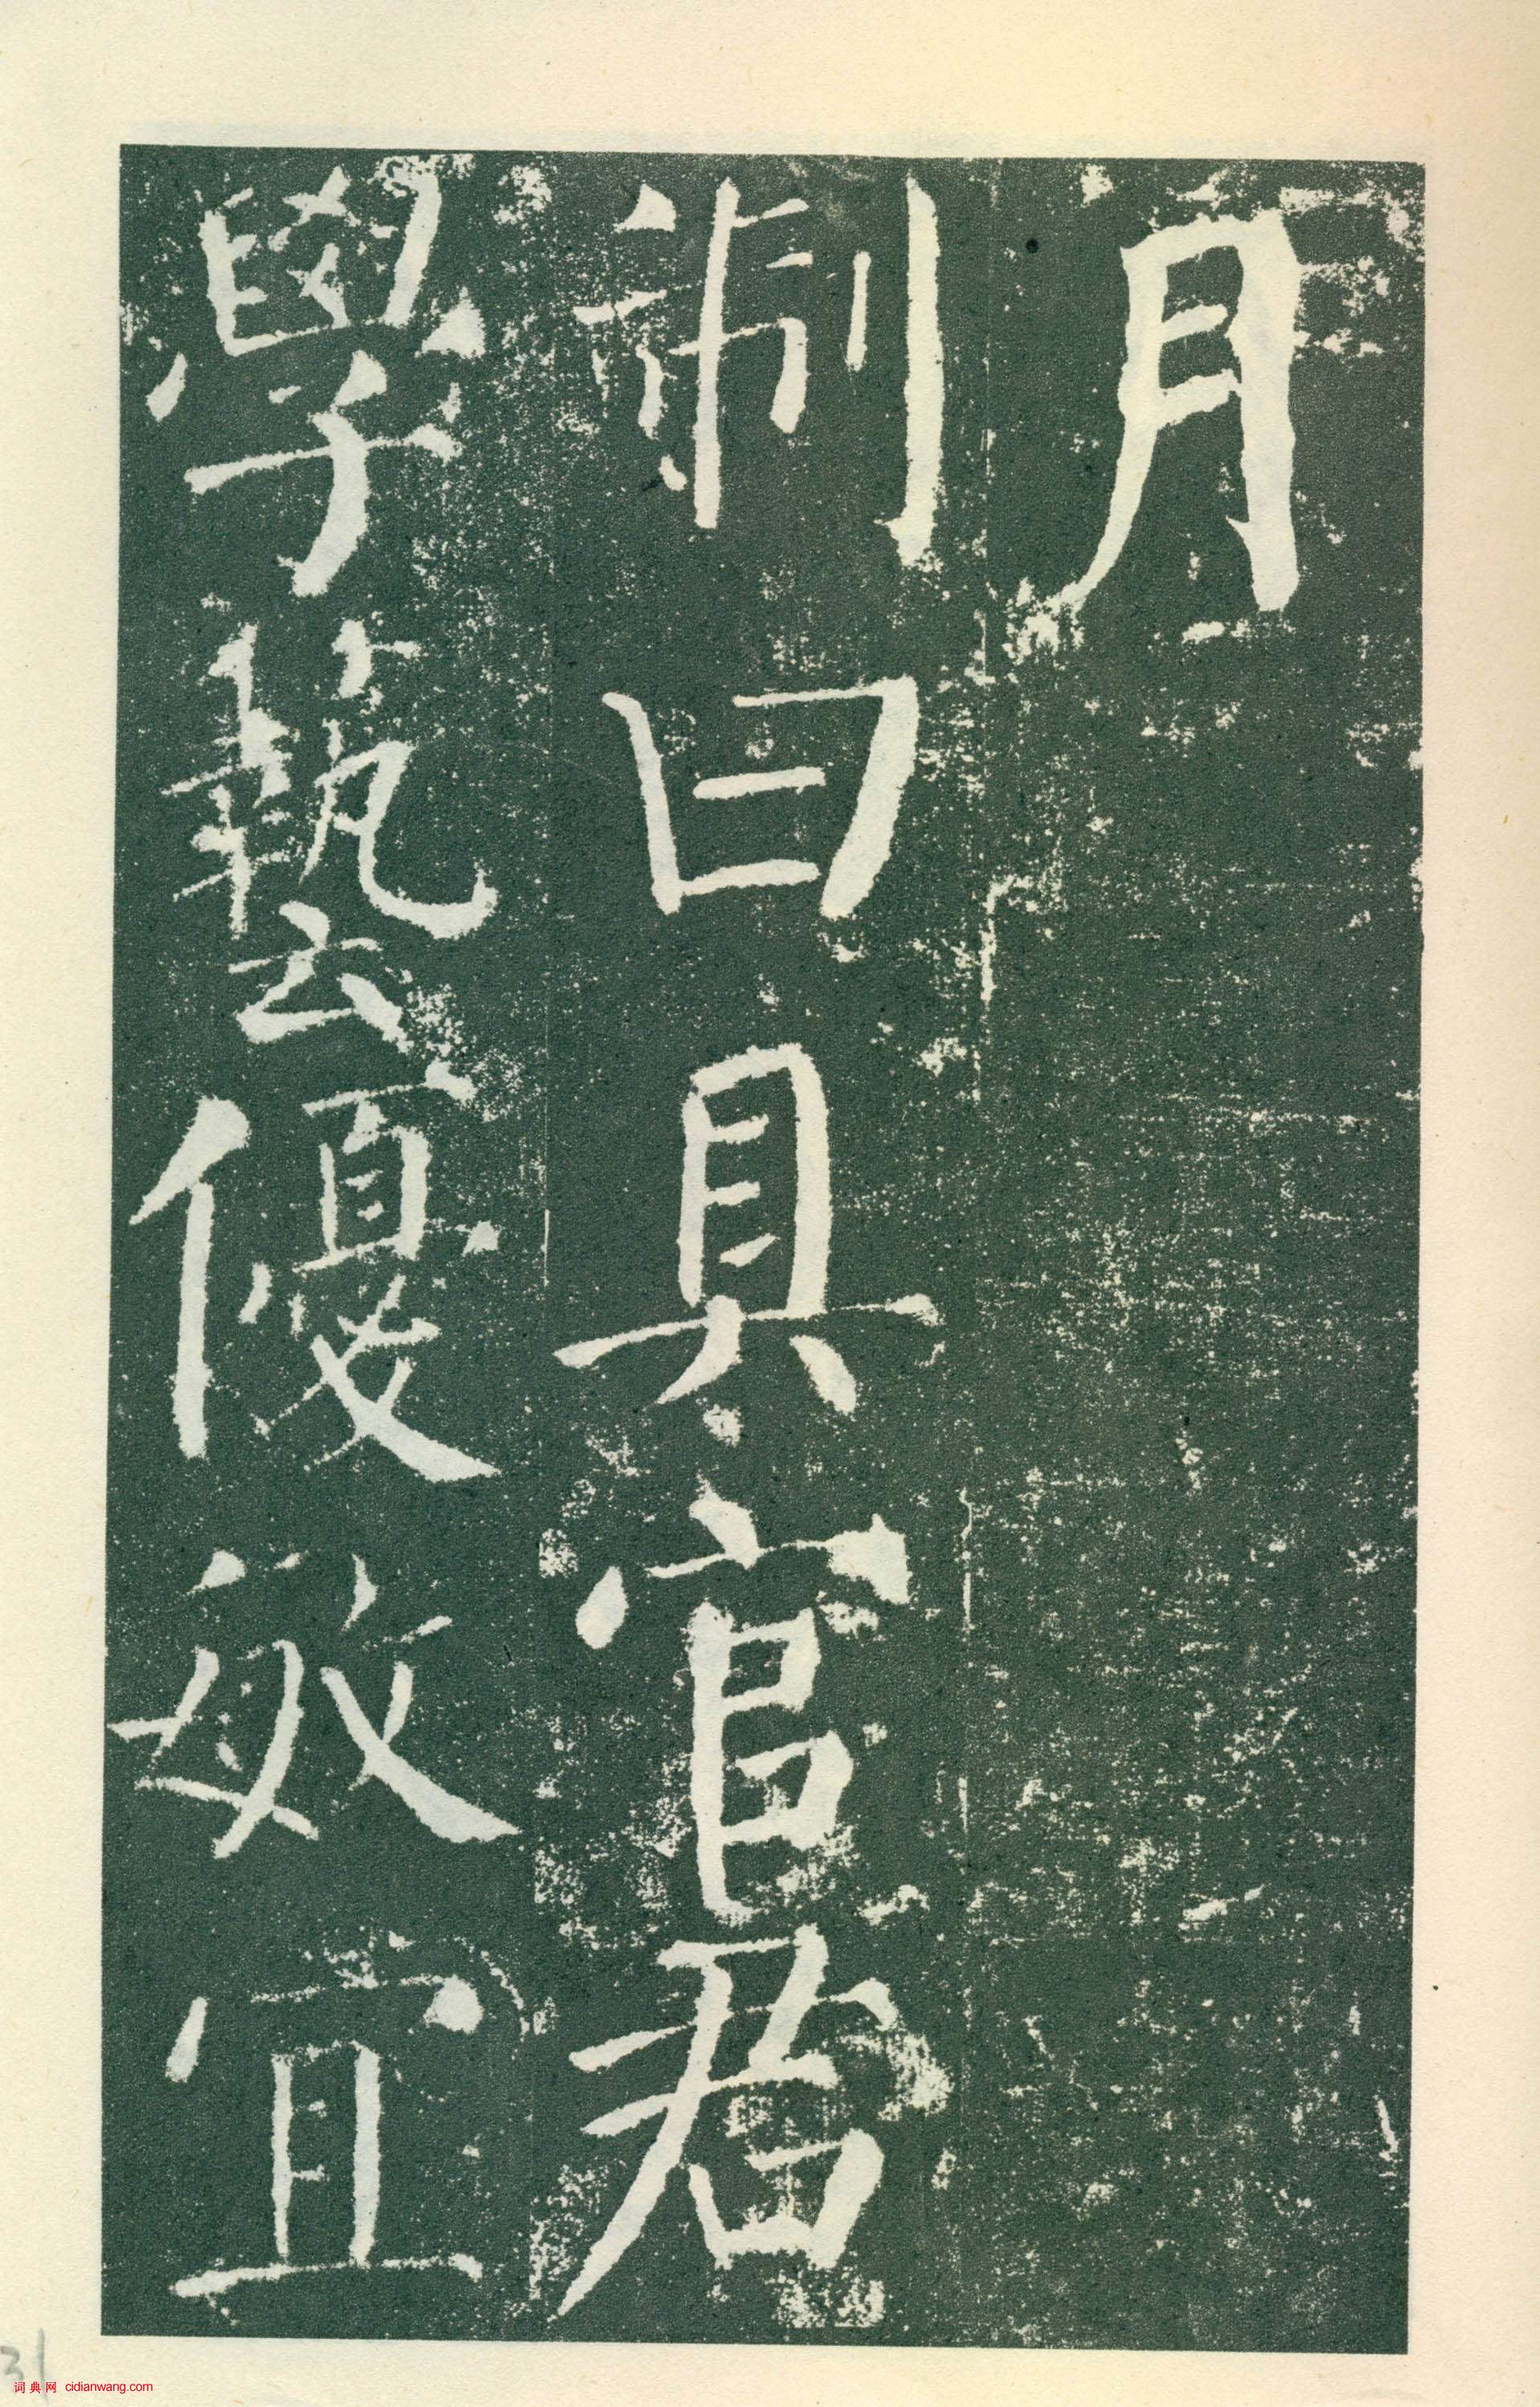 月
制曰具官君
學藝優敏宜
31
词典网 cidianwang.com